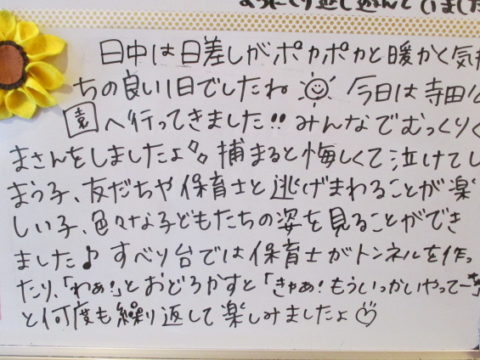 ようにくり返し遊んでいました
日中は日差しがポカポカと暖かく気持
ちの良い1日でしたね 今日は寺田公
園へ行ってきました!! みんなでむっくりく
まさんをしましたよ 捕まると悔しくて泣けてし
まう子、友だちや保育士と逃げまわることが楽
しい子、色々な子どもたちの姿を見ることができ
ました♪ すべり台では保育士がトンネルを作っ
たり、「わぁ!」とおどろかすと「きゃぁ!もういっかいやってーっ」
と何度も繰り返して楽しみましたよ♡